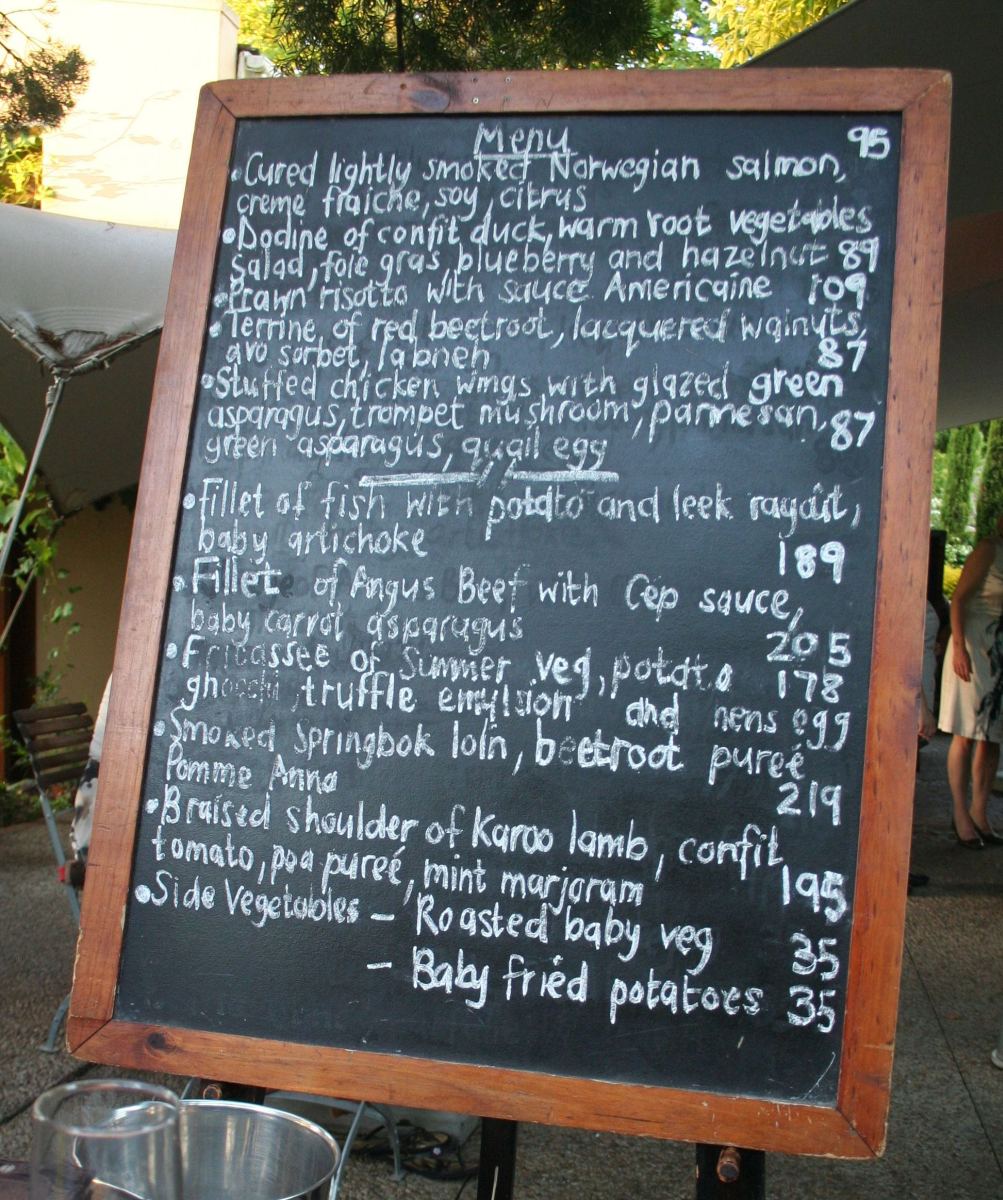 Menu
•Cured lightly smoked Norwegian salmon, 95
creme fraiche, soy, citrus
•Dodine of confit duck, warm root vegetables
salad, foie gras, blueberry and hazelnut 89
•Prawn risotto with sauce Americaine 109
•Terrine of red beetroot, lacquered walnuts,
avo sorbet, labneh 87
•Stuffed chicken wings with glazed green
asparagus, trompet mushroom, parmesan, 87
green asparagus, quail egg
•Fillet of fish with potato and leek ragoût,
baby artichoke 189
•Fillet of Angus Beef with Cep sauce,
baby carrot asparagus 205
•Fricassee of Summer veg, potato 178
ghocchi, truffle emylsion and hens egg
•Smoked Springbok loin, beetroot pureé
Pomme Anna 219
•Braised shoulder of Karoo lamb, confit
tomato, pea pureé, mint marjoram 195
•Side Vegetables – Roasted baby veg 35
– Baby fried potatoes 35